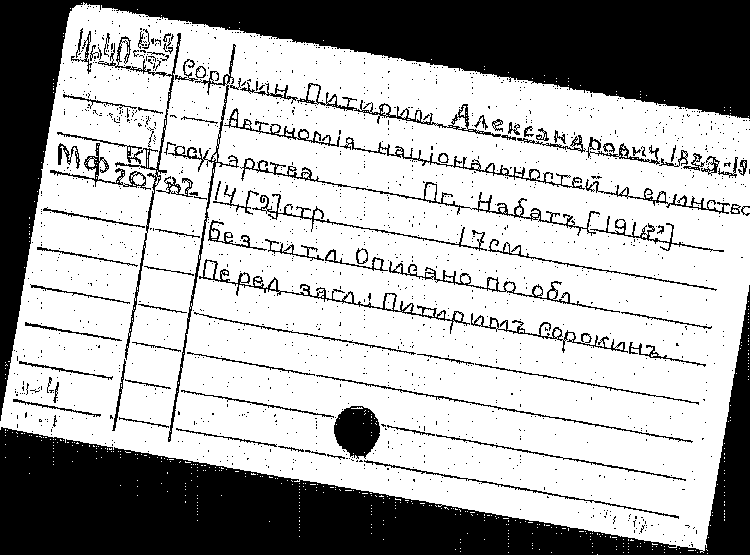 Сорокин, Питирим Александрович, 1889-19
Автономія національностей и единство
государства. Пг., Набатъ, [191
14, [2] стр. 17 см.
Без тит. л. Описано по обл.
Перед загл.: Питиримъ Сорокинъ.
Мф К1
20782